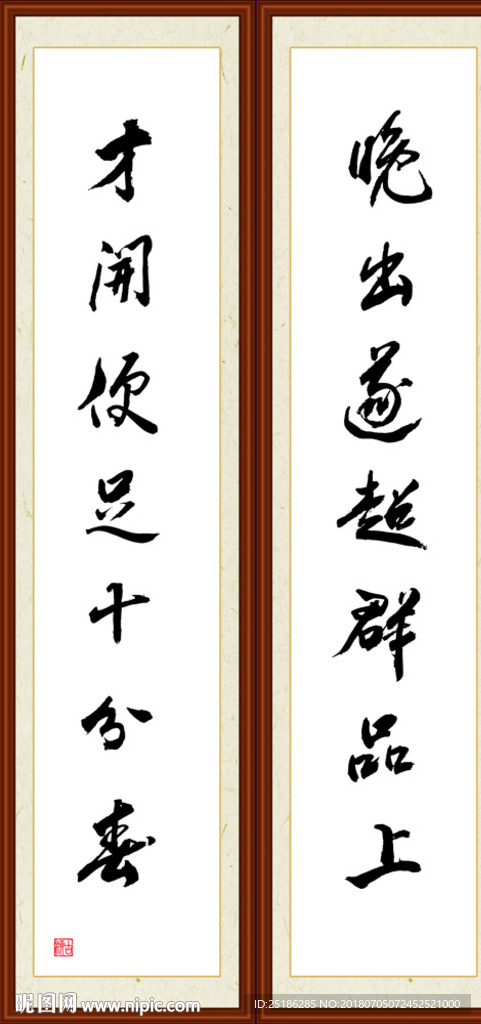 晚出遂超群品上
才開便足十分春
昵图网 www.nipic.com
ID:25186285 NO:20180705072452521000